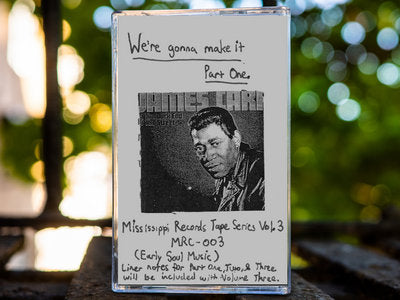 We're gonna make it
Part One.
JAMES CARR
Mississippi Records Tape Series Vol. 3
MRC-003
(Early Soul Music)
Liner notes for Part One, Two, & Three
will be included with Volume Three.